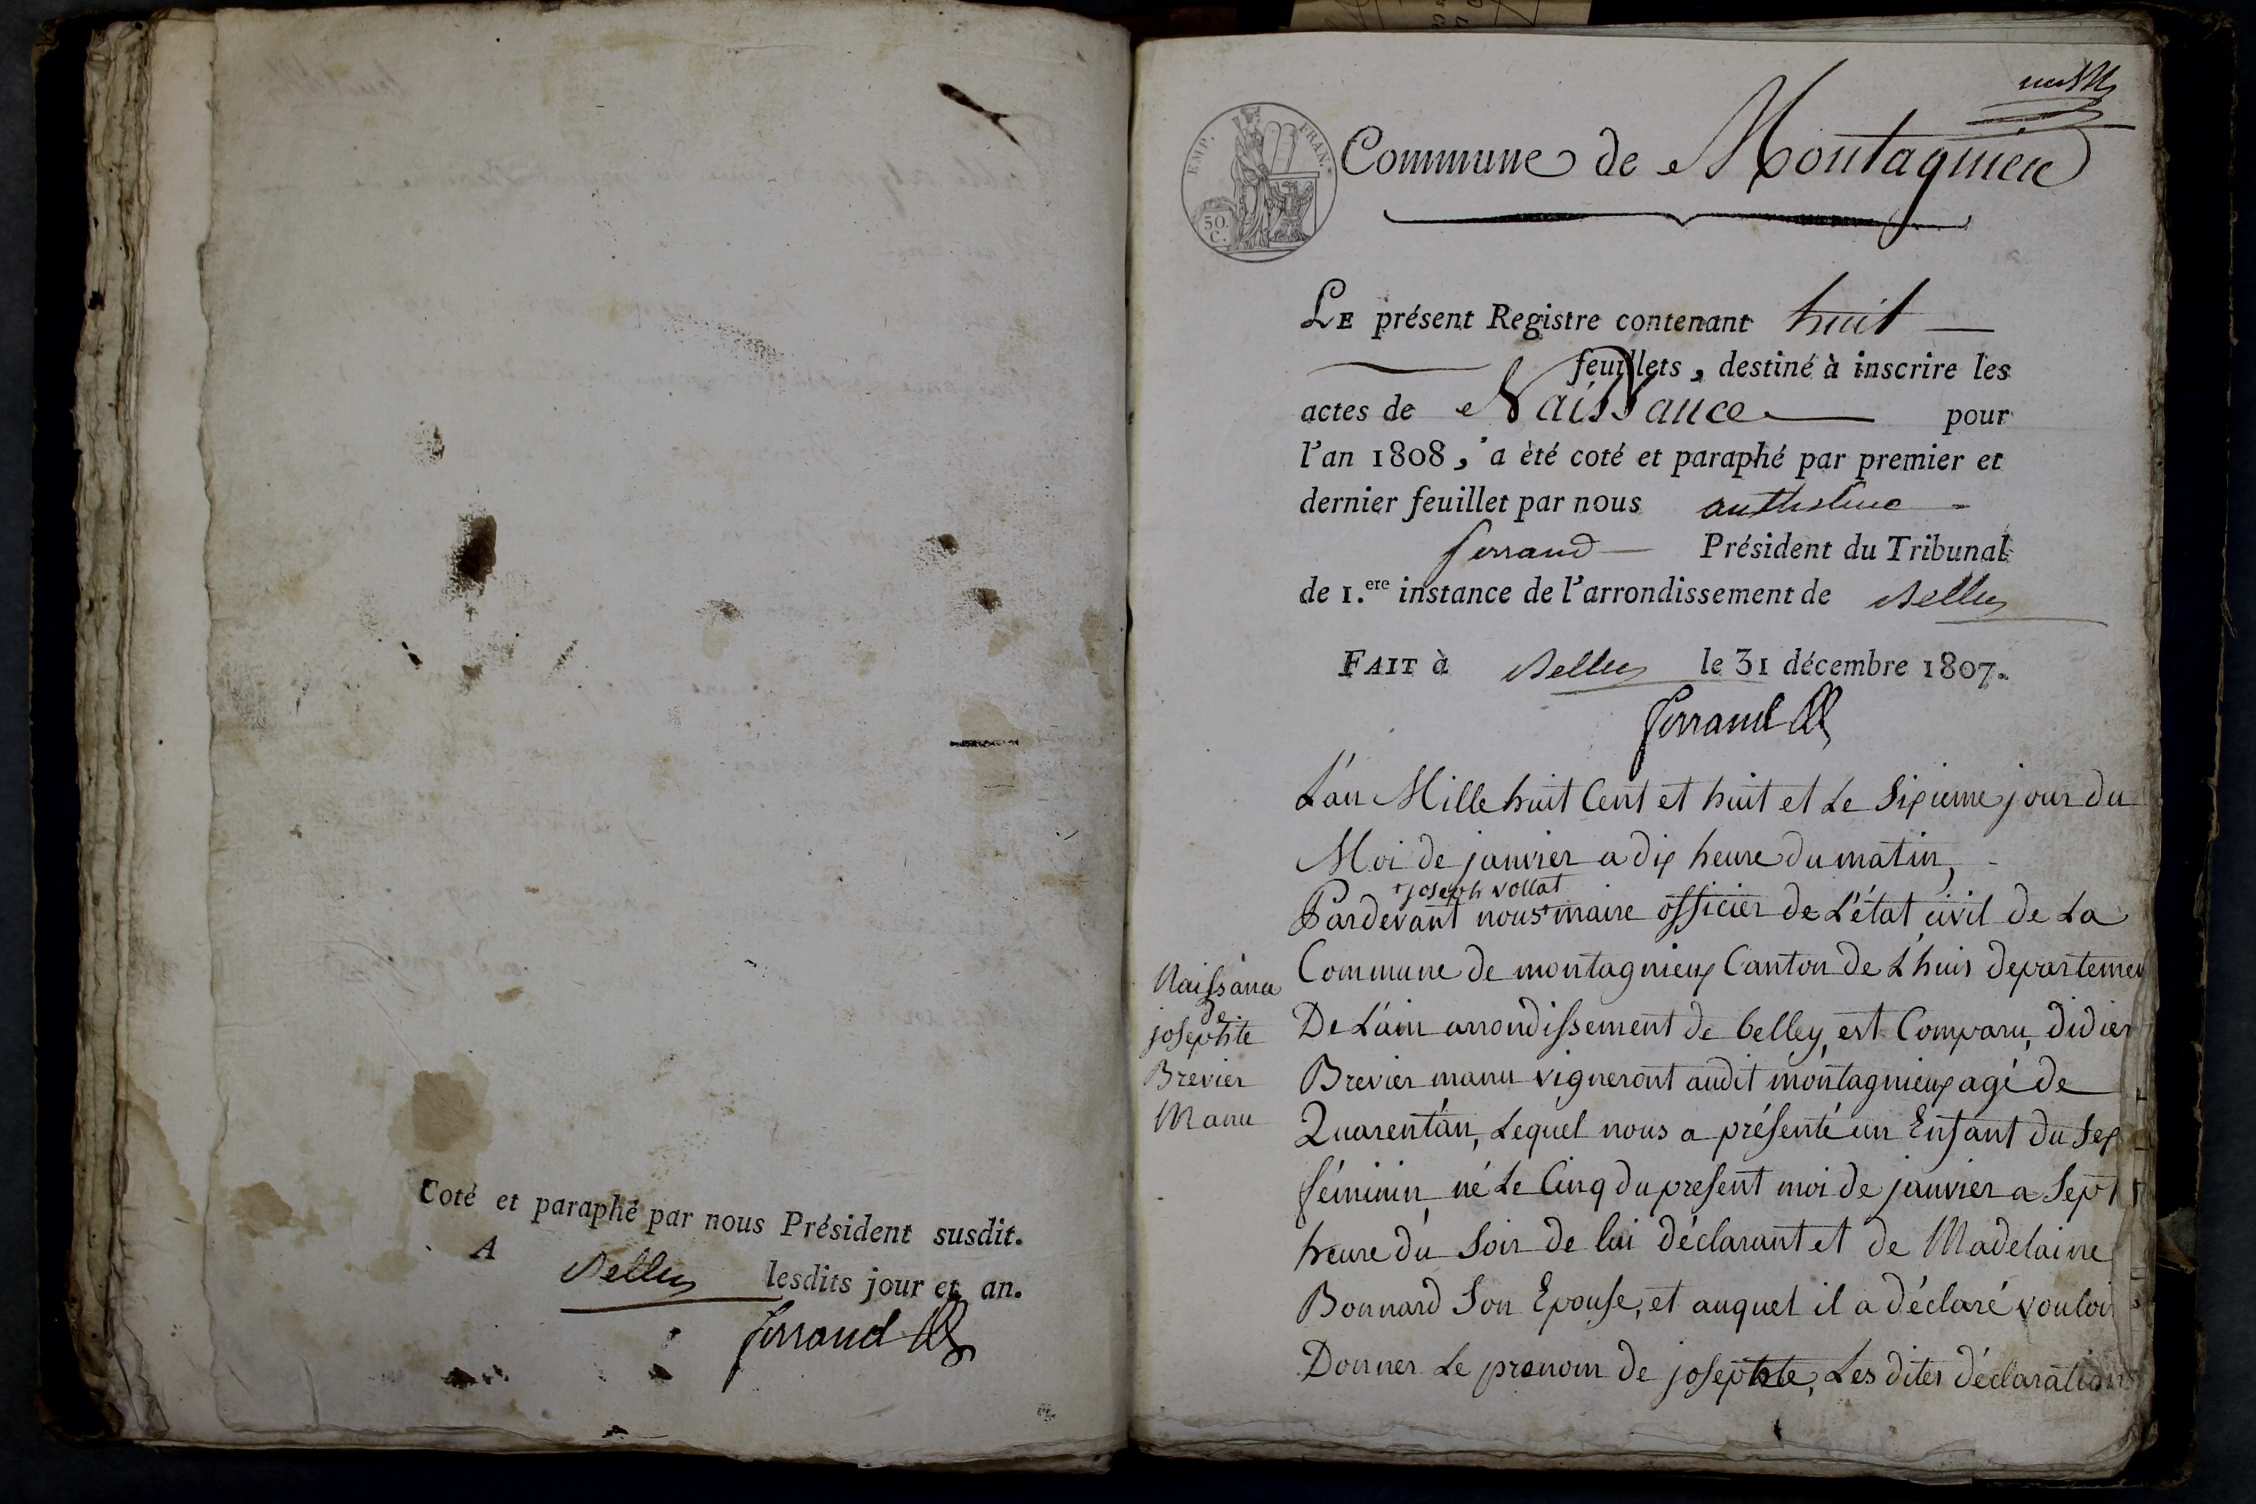 Coté et paraphé par nous Président susdit.
A Belley lesdits jour et an.
ferrand
EMP. FRAN.
50. C.
Commune de Montagnieu
LE présent Registre contenant huit
feuillets, destiné à inscrire les
actes de Naissance pour
l'an 1808, a été coté et paraphé par premier et
dernier feuillet par nous anthelme
ferrand Président du Tribunal
de 1.ere instance de l'arrondissement de Belley
FAIT à Belley le 31 décembre 1807.
ferrand
L'an Mille huit Cent et huit et Le Sixieme jour du
Moi de janvier a dix heure du matin,
+ joseph vollat
Pardevant nous + maire officier de L'état civil de La
Commune de montagnieux Canton de L'huis departemen
De L'ain arrondissement de belley, est Comparu, didier
Brevier manu vigneront audit montagnieux agé de
Quarent'an, Lequel nous a présenté un Enfant du Sex
féminin né Le Cinq du present moi de janvier a Sept
heure du Soir de lui déclarant et de Madelaine
Bonnard Son Epouse, et auquel il a déclaré vouloir
Donner Le prenom de josephte, Les dites déclarations
Naissance
de
josephte
Brevier
Manu